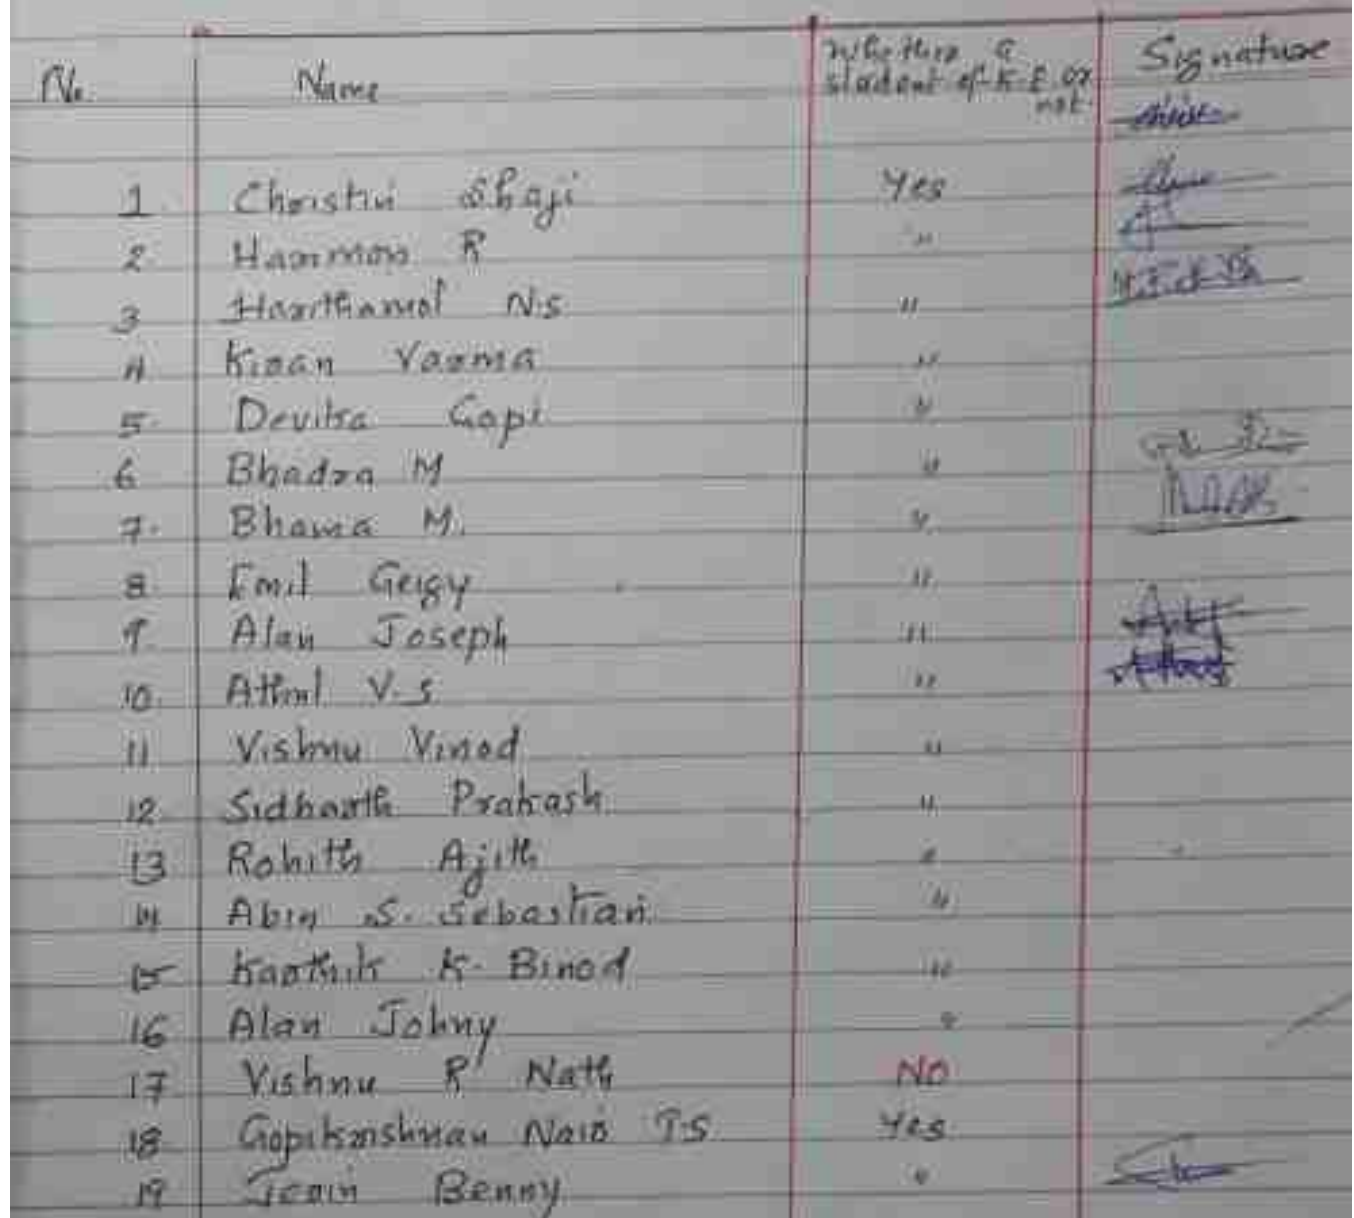 No. Name Whether a student of K.E. or not. Signature
1. Christin Shaji Yes
2. Harimon R "
3 Harithamol N.S "
4 Kiran Varma "
5. Devika Gopi "
6 Bhadra M "
7. Bhama M. "
8. Emil Geigy "
9. Alan Joseph "
10. Athul V.S "
11 Vishnu Vinod "
12 Sidharth Prakash "
13 Rohith Ajith "
14 Abin S. Sebastian "
15 Karthik K. Binod "
16 Alan Johny "
17 Vishnu R Nath NO
18 Gopikrishnan Nair T.S Yes
19 Jeain Benny "